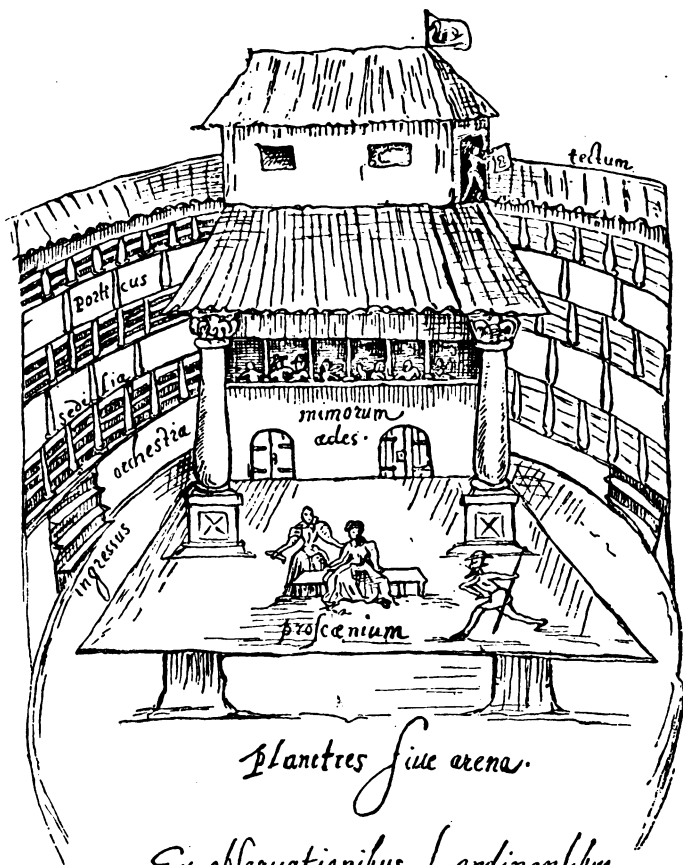 tectum
porticus
sedilia
orchestra
mimorum
ædes.
ingressus
proſcænium
planities ſiue arena.
Ex obſeruationibus Londinenſibus